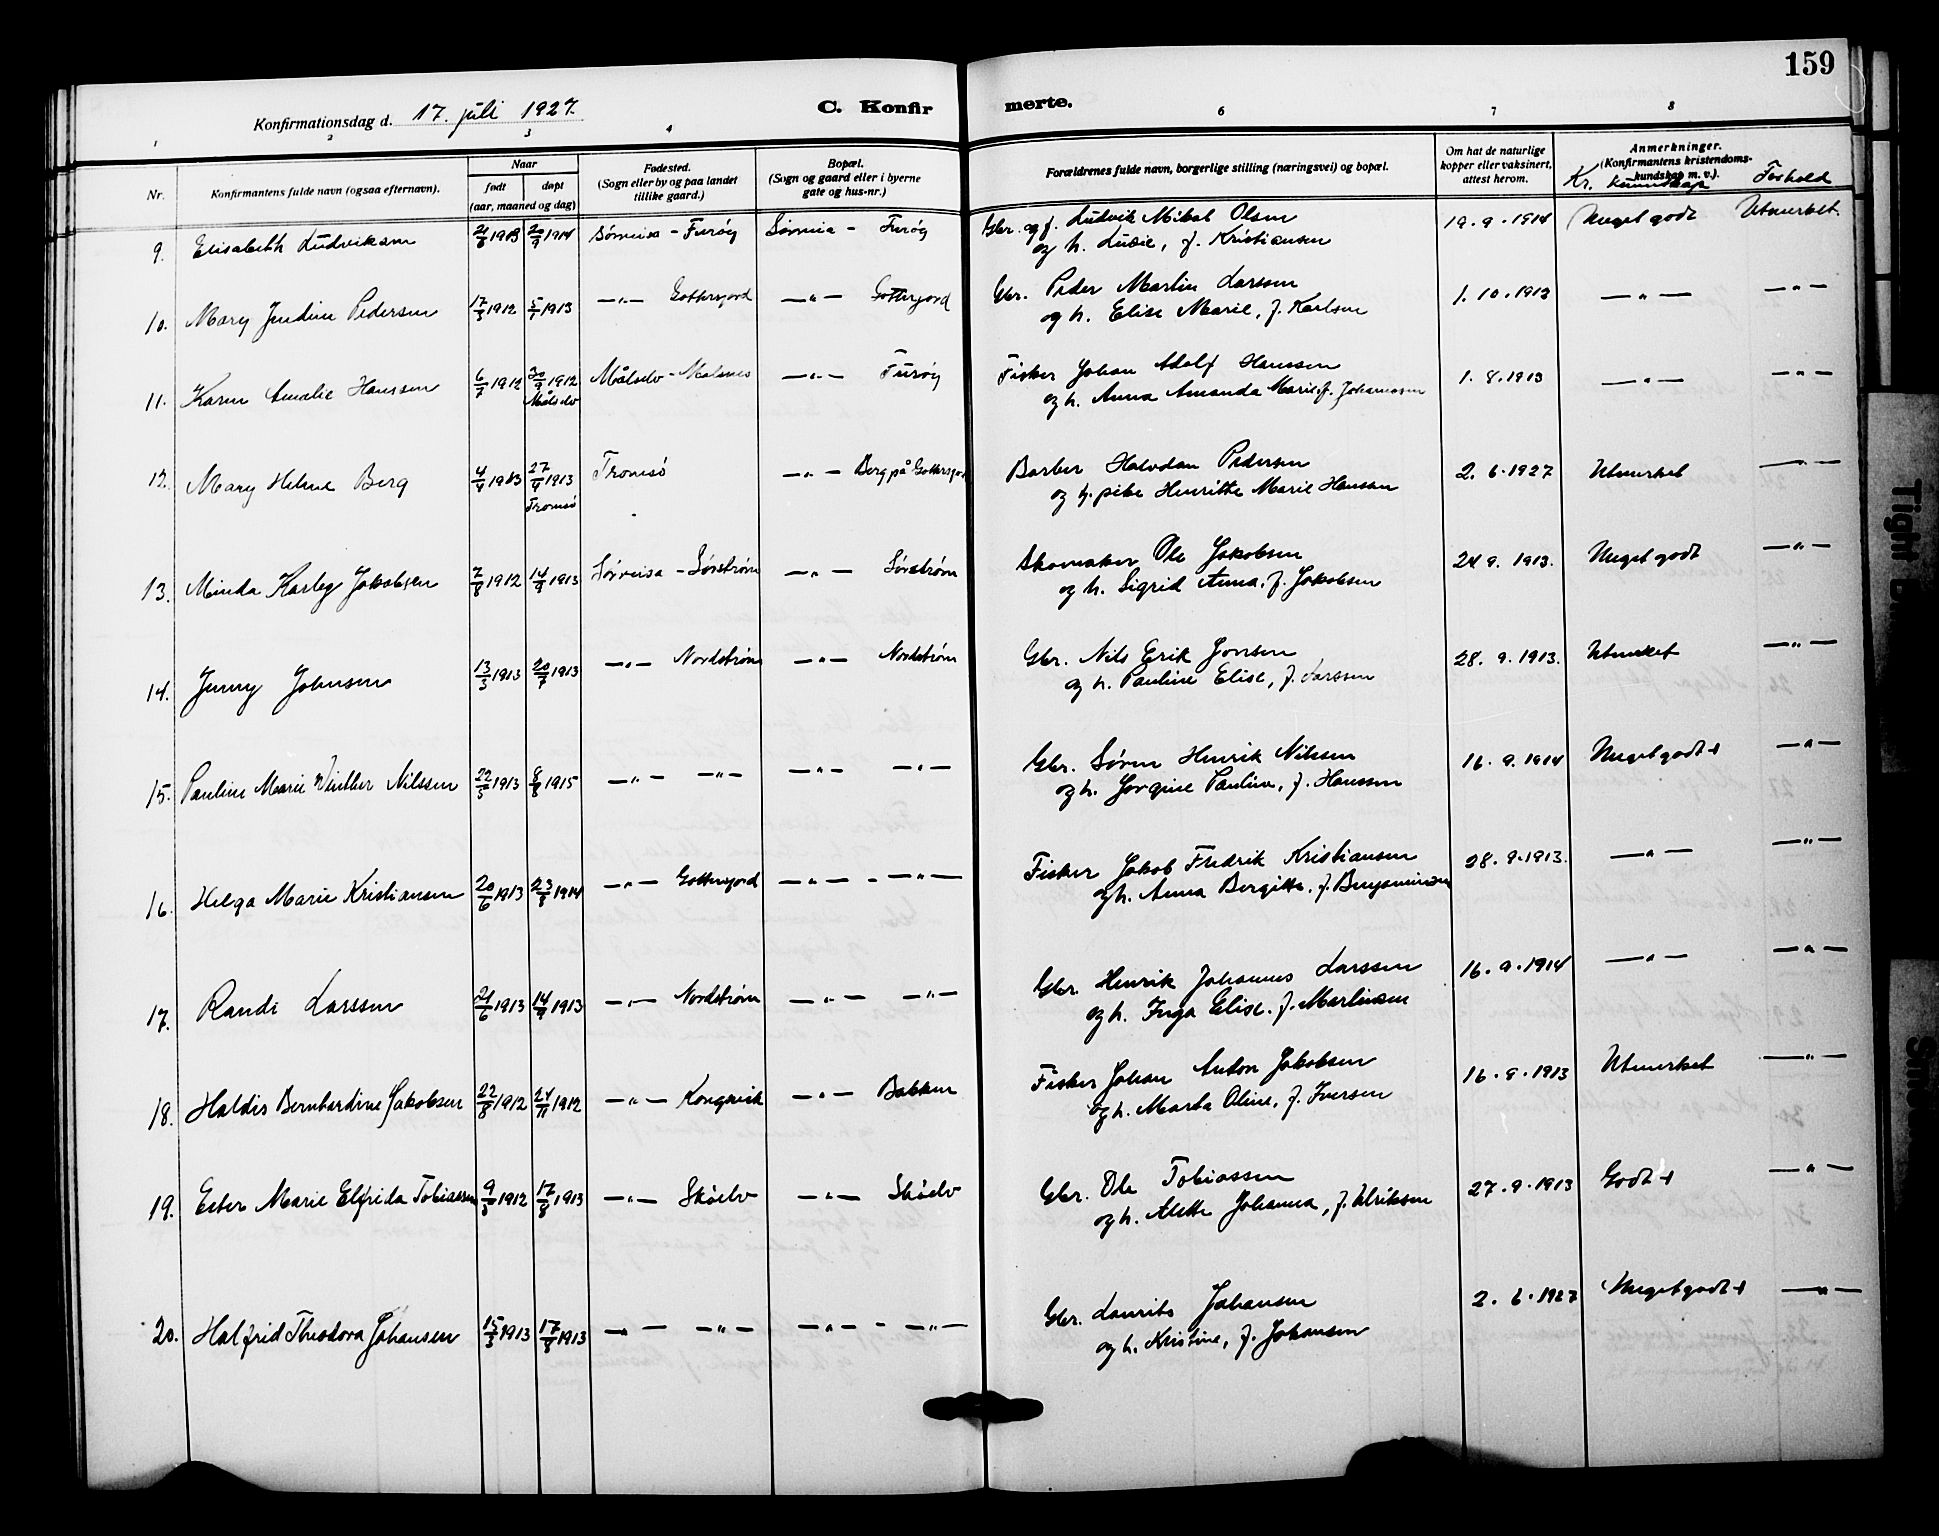 159
Konfirmationsdag d. 17. juli 1927.
C. Konfir
merte.
1 2 3 4 6 7 8
Nr.
Konfirmantens fulde navn (ogsaa efternavn).
Naar
født døpt
(aar, maaned og dag)
Fødested.
(Sogn eller by og paa landet
tillike gaard.)
Bopæl.
(Sogn og gaard eller i byerne
gate og hus-nr.)
Forældrenes fulde navn, borgerlige stilling (næringsvei) og bopæl.
Om hat de naturlige
kopper eller vaksinert,
attest herom.
Anmerkninger.
(Konfirmantens kristendoms-
kundskap m. v.).
Kr. kunnskap Forhold
9. Elisabeth Ludviksen 1913 20/9 1914 Sørreisa - Furøy Sørreisa - Furøy Gbr. og f. Ludvik Mikal Olsen 19.9.1914 Meget godt Utmerket
og h. Lusie, f. Kristiansen
10. Mary Jendine Pedersen 17/3 1912 5/1 1913 -"- Gottersjord -"- Gottersjord Gbr. Peder Martin Larssen 1.10.1913 -"- -"-
og h. Elise Marie, f. Karlsen
11. Karen Amalie Hanssen 6/7 1912 30/9 1912 Målselv - Malsnes -"- Furøy Fisker Johan Adolf Hanssen 1.8.1913 -"- -"-
Målselv
og h. Anna Amanda Marie f. Johannessen
12. Mary Helene Berg 4/4 1913 27/4 1913 Tromsø -"- Berg på Gottersjord Barber Halvdan Pedersen 2.6.1927 Utmerket -"-
Tromsø
og h. pike Henritte Marie Hansen
13. Minda Karley Jakobsen 7/8 1912 14/9 1913 Sørreisa - Sørstrøm -"- Sørstrøm Skomaker Ole Jakobsen 24.9.1913. Meget godt -"-
og h. Sigrid Anna, f. Jakobsen
14. Jenny Johnsen 13/3 1913 20/7 1913 -"- Nordstrøm -"- Nordstrøm Gbr. Nils Erik Jonsen 28.9.1913. Utmerket -"-
og h. Pauline Elise, f. Larssen
15. Pauline Marie Winther Nilssen 22/5 1913 8/8 1915 -"- -"- -"- -"- Gbr. Søren Henrik Nilssen 16.9.1914 Meget godt+ -"-
og h. Jorgine Pauline, f. Hanssen
16. Helga Marie Kristiansen 20/6 1913 23/8 1914 -"- Gottersjord -"- - -"- Fisker Jakob Fredrik Kristiansen 28.9.1913. -"- -"-
og h. Anna Bergitte, f. Benjaminsen
17. Randi Larssen 21/6 1913 14/9 1913 -"- Nordstrøm -"- -"- Gbr. Henrik Johannes Larssen 16.9.1914 -"- -"-
og h. Inga Elise. f. Martinsen
18. Haldis Bernhardine Jakobsen 22/8 1912 24/11 1912 -"- Kongsvik -"- Bakken Fisker Johan Anton Jakobsen 16.9.1913 Utmerket -"-
og h. Marta Oline, f. Iversen
19. Ester Marie Elfrida Tobiassen 9/3 1912 17/8 1913 -"- Skøelv -"- Skøelv Gbr. Ole Tobiassen 27.9.1913 Godt+ -"-
og h. Alette Johanna, f. Ulriksen
20. Halfrid Theodora Johansen 15/3 1913 17/8 1913 -"- -"- -"- - -"- Gbr. Laurits Johansen 2.6.1927 Meget godt+ -"-
og h. Kristine, f. Johansen